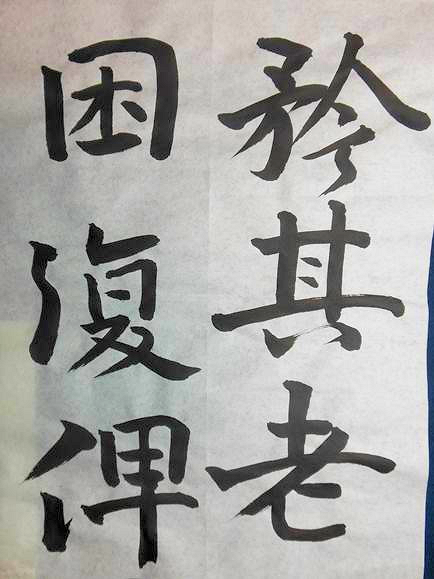 矜其老
困復俾